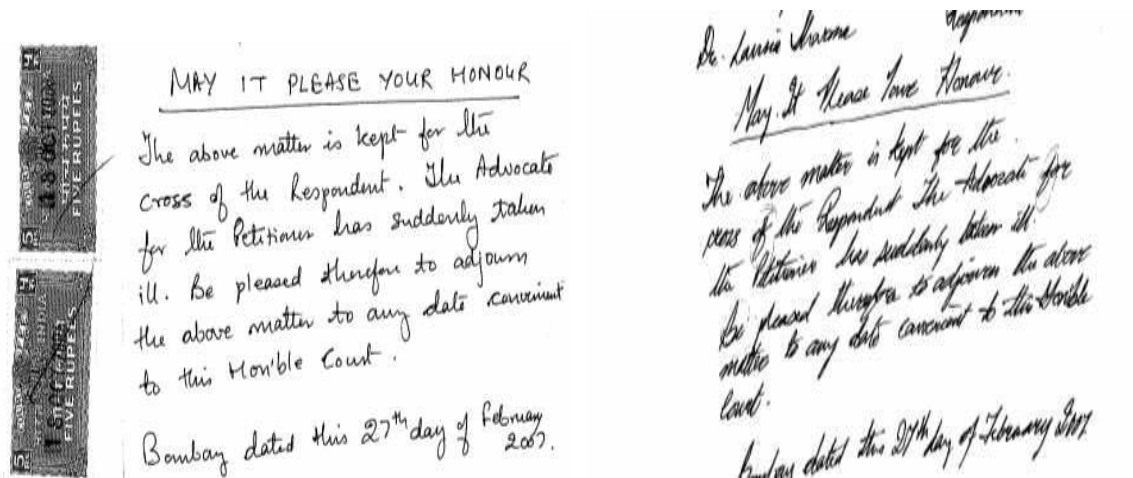 MAY IT PLEASE YOUR HONOUR
The above matter is kept for the
cross of the Respondent. The Advocate
for the Petitioner has suddenly taken
ill. Be pleased therefore to adjourn
the above matter to any date convenient
to this Hon'ble Court.
Bombay dated this 27th day of February
2007.
FIVE RUPEES
FIVE RUPEES
Dr.
May It Please Your Honour.
The above matter is kept for the
cross of the Respondent The Advocate for
the Petitioner has suddenly taken ill.
Be pleased therefore to adjourn the above
matter to any date convenient to this Hon'ble
Court.
Bombay dated this 27th day of February 2007